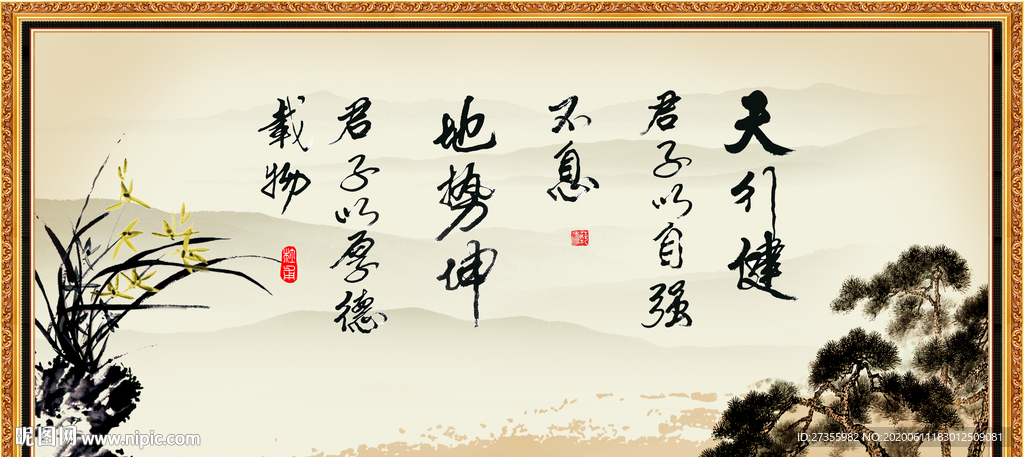 天行健
君子以自强
不息
地势坤
君子以厚德
载物
昵图网 www.nipic.com
ID:27355982 NO:20200611183012509081